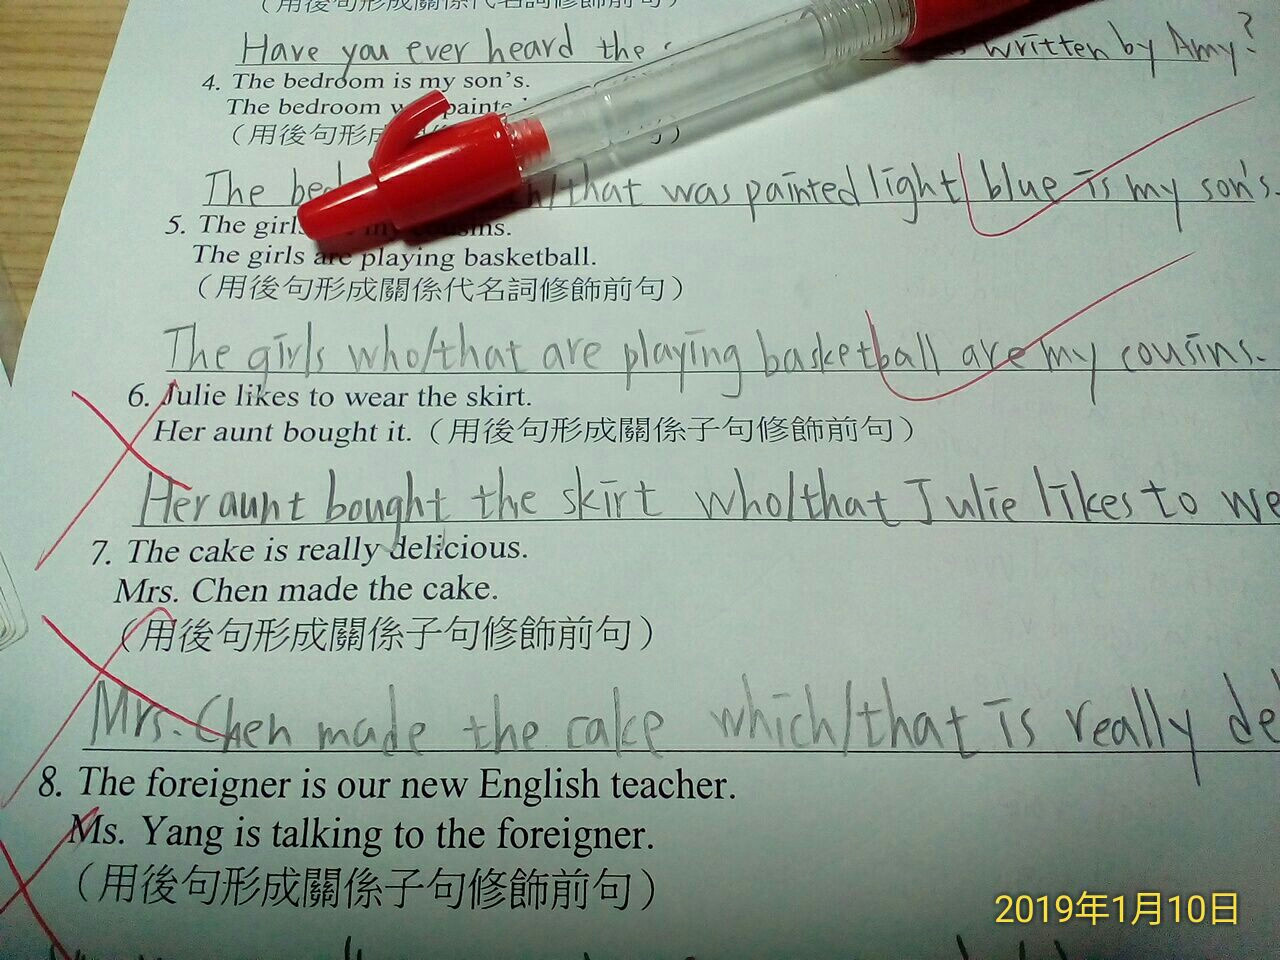 (用後句形成關係代名詞修飾前句)
Have you ever heard the written by Amy?
4. The bedroom is my son's.
The bedroom
(用後句形
The that was painted light blue is my son's.
5. The girls
The girls are playing basketball.
(用後句形成關係代名詞修飾前句)
The girls who/that are playing basketball are my cousins.
6. Julie likes to wear the skirt.
Her aunt bought it. (用後句形成關係子句修飾前句)
Her aunt bought the skirt who/that Julie likes to
7. The cake is really delicious.
Mrs. Chen made the cake.
(用後句形成關係子句修飾前句)
Mrs. Chen made the cake which/that is really
8. The foreigner is our new English teacher.
Ms. Yang is talking to the foreigner.
(用後句形成關係子句修飾前句)
2019年1月10日